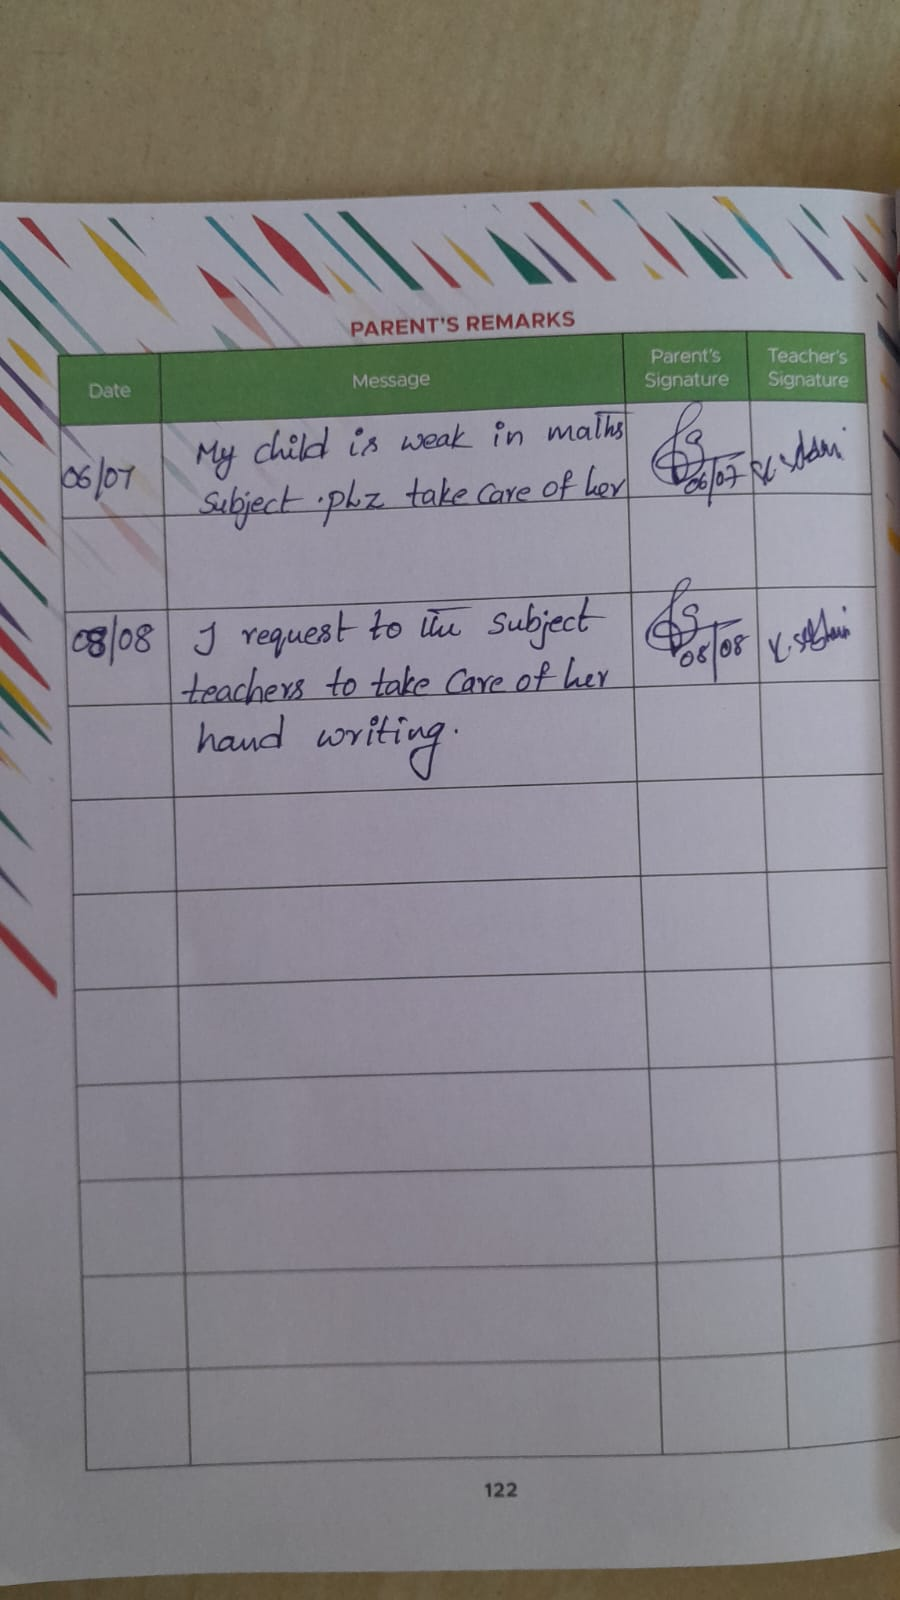 PARENT'S REMARKS
Date Message Parent's Signature Teacher's Signature
06/07 My child is weak in maths
Subject . plz take care of her
06/07
08/08 I request to the subject
teachers to take care of her
hand writing.
08/08
122